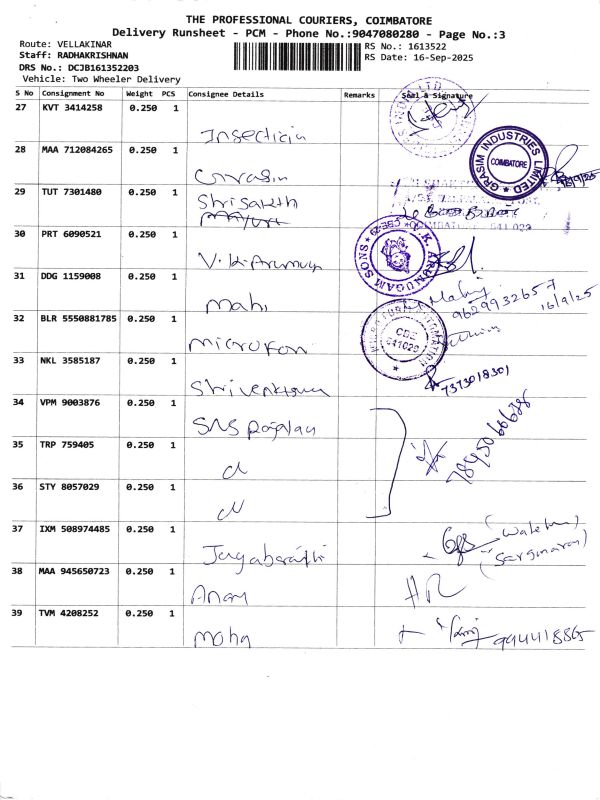 THE PROFESSIONAL COURIERS, COIMBATORE
Delivery Runsheet - PCM - Phone No.:9047080280 - Page No.:3
Route: VELLAKINAR
Staff: RADHAKRISHNAN
DRS No.: DCJB161352203
Vehicle: Two Wheeler Delivery
RS No.: 1613522
RS Date: 16-Sep-2025
S No Consignment No Weight PCS Consignee Details Remarks Seal & Signature
27 KVT 3414258 0.250 1
Insecticia
28 MAA 712084265 0.250 1
Grasim
GRASIM INDUSTRIES LIMITED
COIMBATORE
29 TUT 7301480 0.250 1
Shrisakth
30 PRT 6090521 0.250 1
V.K.Arumug
V.K. ARUMUGAM SONS
31 DDG 1159008 0.250 1
Mahi
9629932657
16/9/25
32 BLR 5550881785 0.250 1
Microfon
CBE
641029
33 NKL 3585187 0.250 1
7373018301
34 VPM 9003876 0.250 1
SNS
35 TRP 759405 0.250 1
36 STY 8057029 0.250 1
37 IXM 508974485 0.250 1
38 MAA 945650723 0.250 1
39 TVM 4208252 0.250 1
Moha